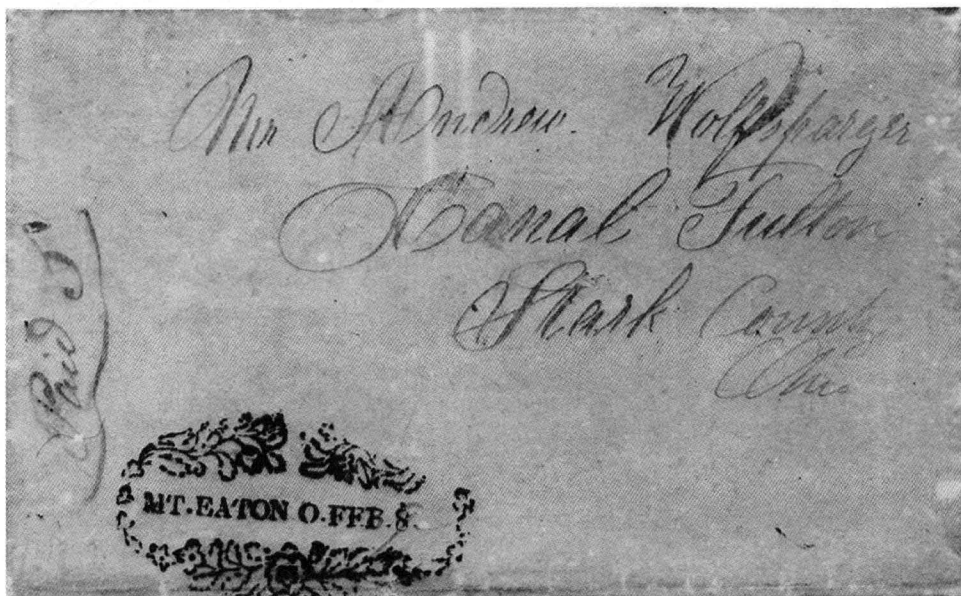 Mr Andrew. Wolfsparger
Canal Fulton
Stark County
Ohio
Paid 3
MT. EATON O. FEB. 8